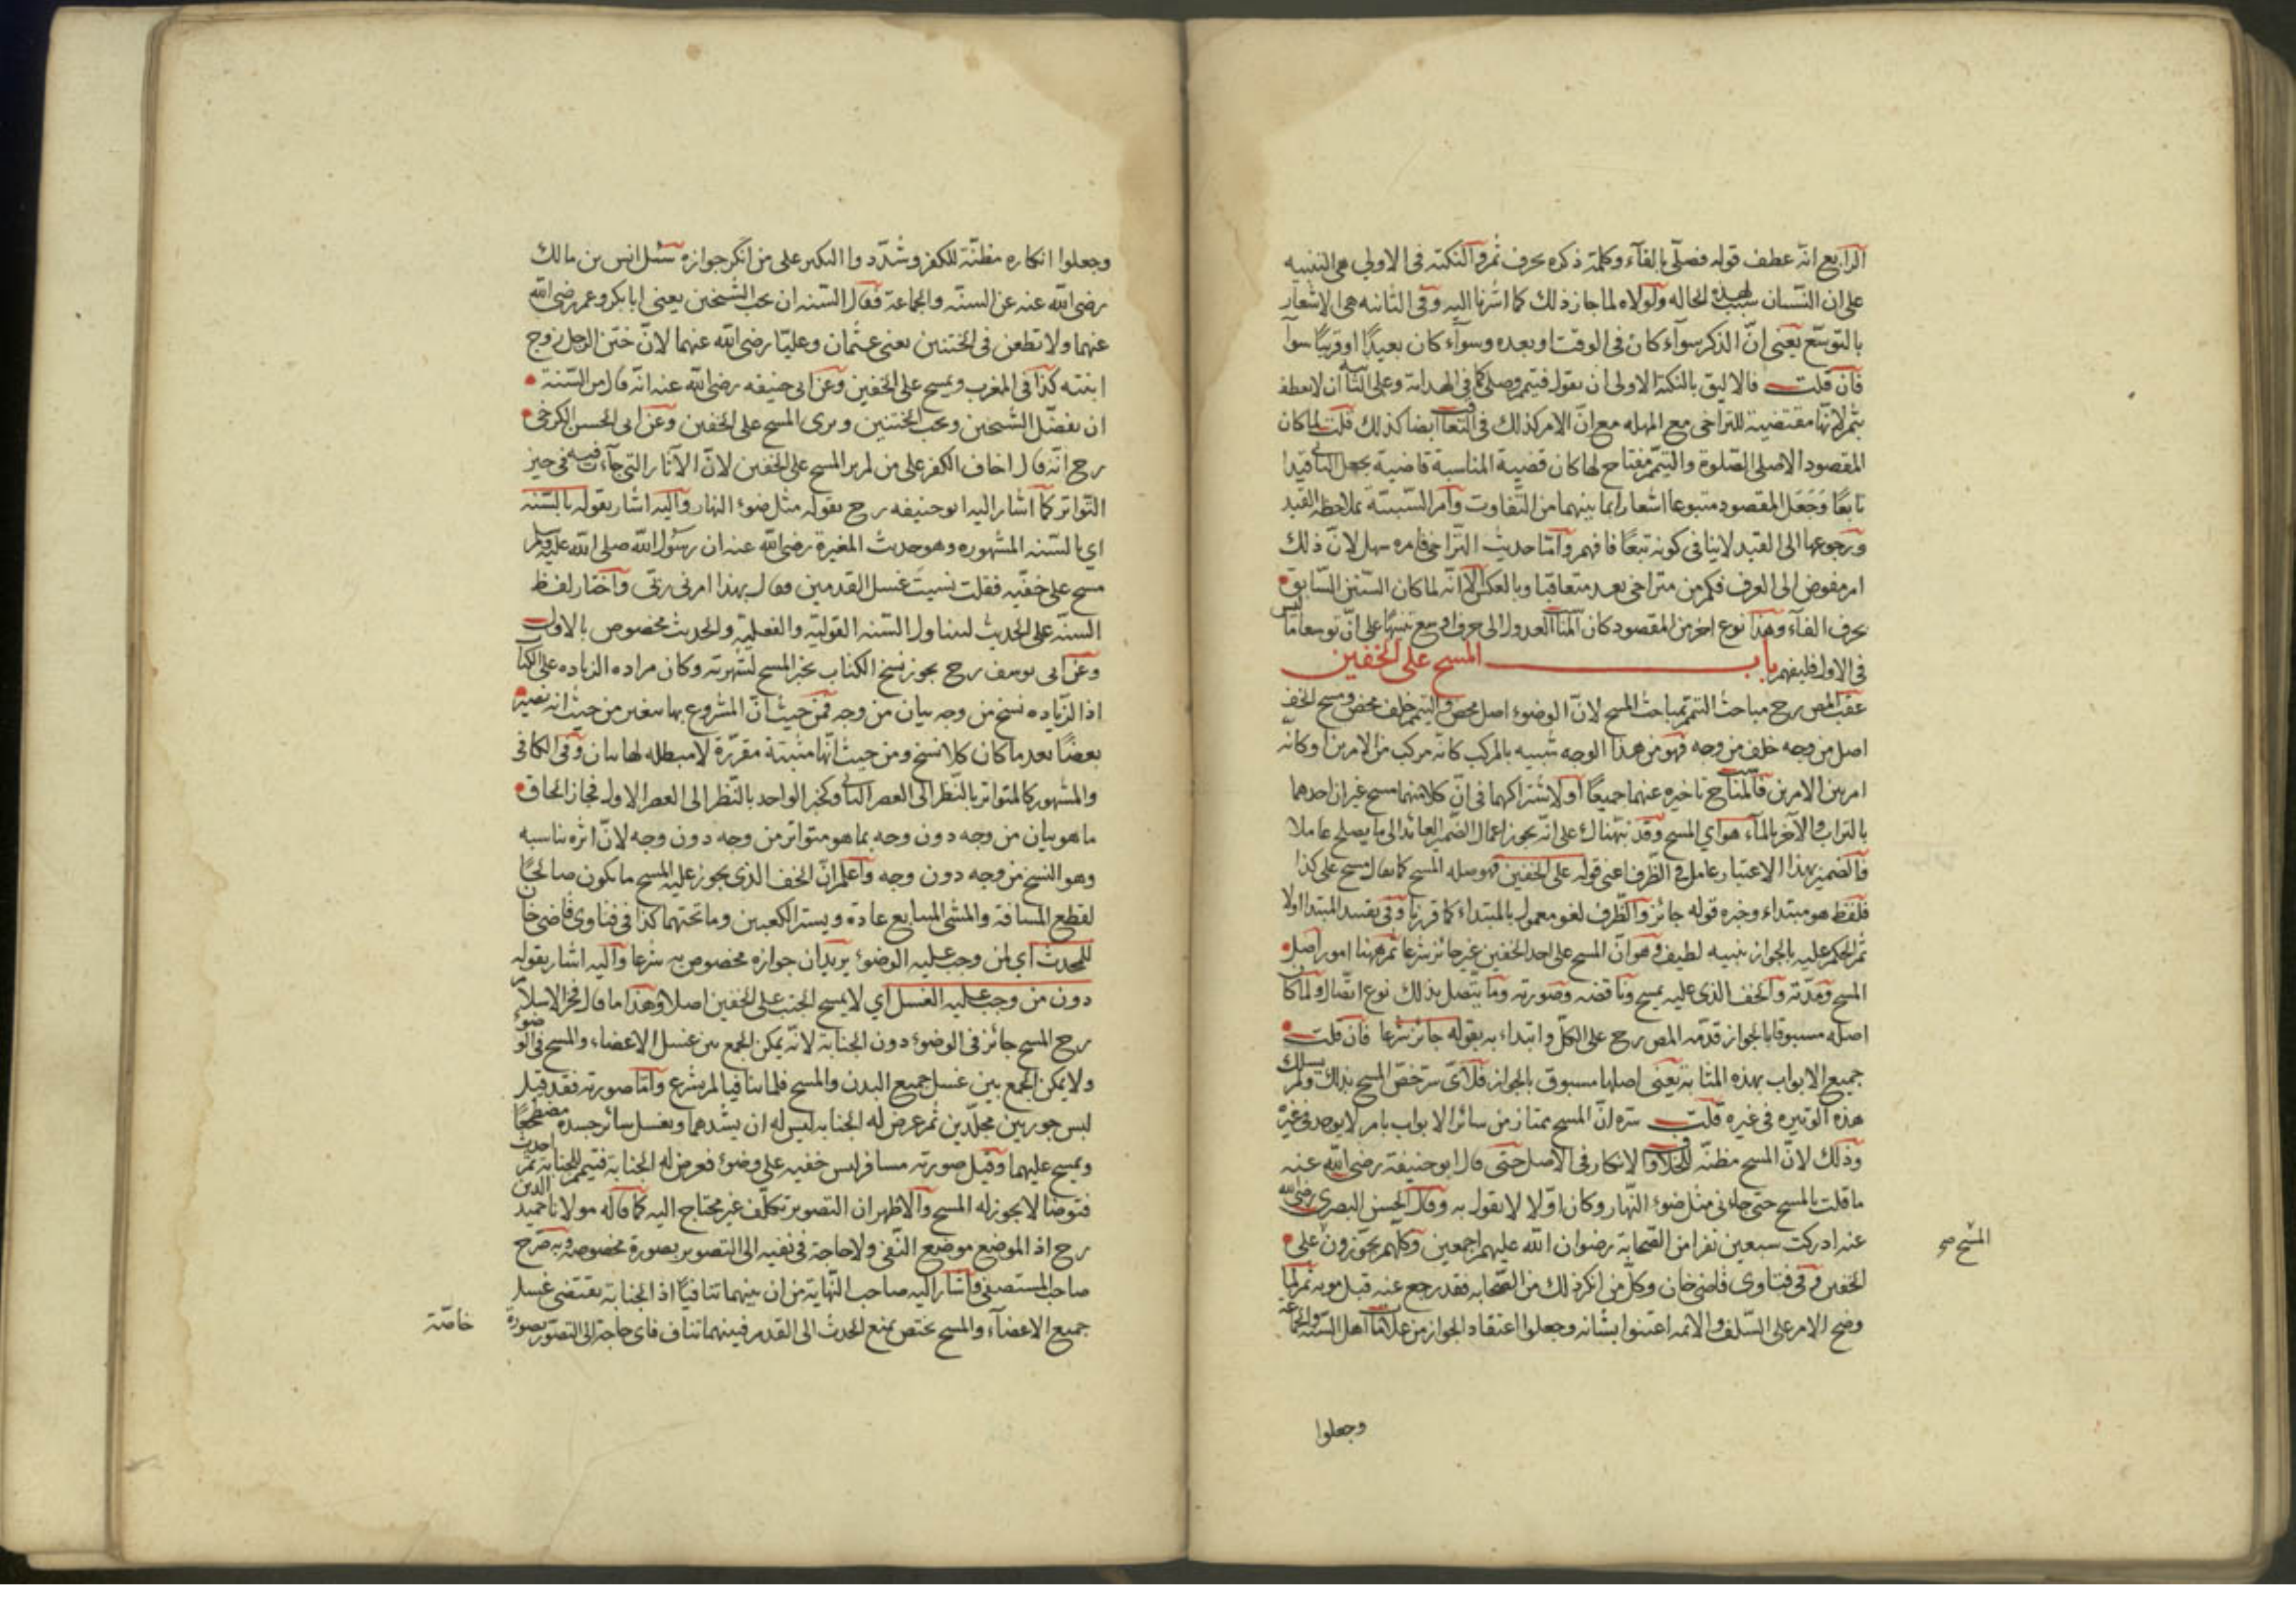 الرابع انه عطف قوله فصلى بالفاء وكلمة ذكره بحرف ثم والنكتة في الاولى هي التنبيه
على ان النسيان سبب لهذه الحاله ولولاه لما جاز ذلك كما اشرنا اليه وفى الثانيه هى الاشعار
بالتوسع يعنى انّ الذكر سوآء كان فى الوقت او بعده وسوآء كان بعيدًا او قريبًا سوآ
فان قلت فالاليق بالنكتة الاولى ان يقول فتيمم وصلى كما فى الهداية وعلى الثا ان لا يعطف
بثم لانها مقتضية للتراخى مع المهله مع انّ الامر كذلك فى ايضا كذلك قلت لما كان
المقصود الاصلى الصلوة والتيمم مفتاح لها كان قضية المناسبة قاضية بجعل الثانى قيدا
تابعًا وجعل المقصود متبوعا اشعارا بما بينهما من التفاوت وامر السببية بملاحظة القيد
ورجوعها الى القيد لا ينافى كونه تبعًا فافهم وامّا حديث التراخى فامره سهل لانّ ذلك
امر مفوض الى العرف فكم من متراخى يعد متعاقبا وبالعكس الا انّه لما كان السابق
بحرف الفآء وهذا نوع اخر من المقصود كان العدول الى حرف اوسع تنبيهًا على انّ توسعا ما ليس
فى الاول فليفهم باب المسح على الخفين
عقب المص رح مباحث التيمم بمباحث المسح لانّ الوضوء اصل محض والتيمم خلف محض ومسح الخف
اصل من وجه خلف من وجه فهو من هذا الوجه شبيه بالمركب كانه مركب من الامرين وكانه
امر بين الامرين فالمناسب تاخيره عنهما جميعًا او لاشتراكهما فى انّ كلا منهما مسح غير ان احدهما
بالتراب والآخر بالمآء هو اى المسح وقد نبهناك على انّه يجوز اعمال الضمير العائد الى ما يصلح عاملا
فالضمير بهذا الاعتبار عامل فى الظرف اعنى قوله على الخفين فهو صله المسح كما يقال مسح على كذا
فلفظ هو مبتداء وخبره قوله جائز والظرف لغو معمول بالمبتداء كما قررنا وفى تقييد المبتدا اولا
ثم الحكم عليه بالجواز تنبيه لطيف وهو انّ المسح على احد الخفين غير جائز شرعا ثم ههنا امور اصل
المسح ومدّته والخف الذى عليه يمسح وناقضه وصورته وما يتصل بذلك نوع اتصال ولما كان
اصله مسبوقا بالجواز قدّمه المص رح على الكلّ وابتداء به بقوله جائز شرعا فان قلت
جميع الابواب بهذه المثابة يعنى اصلها مسبوق بالجواز فلاىّ سرّ خصّ المسح بذلك ولم يسلك
هذه الوتيره فى غيره قلت سرّه انّ المسح ممتاز من سائر الابواب بامر لا يوجد فى غيره
وذلك لانّ المسح مظنّة للخلاف والانكار فى الاصل حتى قال ابو حنيفة رضى الله عنه
ما قلت بالمسح حتى جاءنى مثل ضوء النهار وكان اوّلا لا يقول به وقال الحسن البصرى رضى الله
عنه ادركت سبعين نفرا من الصحابة رضوان الله عليهم اجمعين وكلّهم يجوّزون على
المسح صح
الخفين وفى فتاوى قاضى خان وكلّ من انكر ذلك من الصحابه فقد رجع عنه قبل موته ثم لما
وضح الامر على السّلف والائمه اعتنوا بشانه وجعلوا اعتقاد الجواز من علامات اهل السنّة والجماعة
وجعلوا
وجعلوا انكاره مظنّة للكفر وشدّدوا النكير على من انكر جوازه سئل انس بن مالك
رضى الله عنه عن السنّه والجماعة فقال السّنه ان تحب الشيخين يعنى ابا بكر وعمر رضى الله
عنهما ولا تطعن فى الختنين يعنى عثمان وعليّا رضى الله عنهما لانّ ختن الرجل زوج
ابنته كذا فى المغرب وتمسح على الخفين وعن ابى حنيفه رضى الله عنه انّه قال من السّنة
ان تفضّل الشيخين وتحب الختنين وترى المسح على الخفين وعن ابى الحسن الكرخى
رح انّه قال اخاف الكفر على من لم ير المسح على الخفين لانّ الآثار التى جآءت فيه فى حيز
التواتر كما اشار اليه ابو حنيفه رح بقوله مثل ضوء النهار واليه اشار بقوله بالسّنه
اى بالسّنه المشهوره وهو حديث المغيرة رضى الله عنه ان رسول الله صلى الله عليه وسلم
مسح على خفّيه فقلت نسيت غسل القدمين فقال بهذا امرنى ربّى واختار لفظ
السنّه على الحديث ليتناول السّنه القوليّة والفعليّة والحديث مخصوص بالاول
وعن ابى يوسف رح يجوز نسخ الكتاب بخبر المسح لشهرته وكان مراده الزياده على الكتاب
اذ الزياده نسخ من وجه بيان من وجه فمن حيث انّ المشروع بها يتغير من حيث انه يصير
بعضًا بعد ما كان كلا نسخ ومن حيث انّها مثبتة مقرّرة لا مبطله لها بيان وفى الكافى
والمشهور كالمتواتر بالنّظر الى العصر الثانى وكخبر الواحد بالنّظر الى العصر الاول فجاز الحاق
ما هو بيان من وجه دون وجه بما هو متواتر من وجه دون وجه لانّ اثره يناسبه
وهو النسخ من وجه دون وجه واعلم انّ الخف الذى يجوز عليه المسح ما يكون صالحًا
لقطع المسافة والمشى المتتابع عادة ويستر الكعبين وما تحتهما كذا فى فتاوى قاضى خان
للمحدث اى لمن وجب عليه الوضوء يريد ان جوازه مخصوص به شرعا واليه اشار بقوله
دون من وجب عليه الغسل اى لا يمسح الجنب على الخفين اصلا وهذا ما قال فخر الاسلام
رح المسح جائز فى الوضوء دون الجنابة لانّه يمكن الجمع بين غسل الاعضاء والمسح فى الوضوء
ولا يمكن الجمع بين غسل جميع البدن والمسح فلما تنافيا لم يشرع وامّا صورته فقد قيل
لبس جوربين مجلّدين ثم عرض له الجنابه ليس له ان يشدهما ويغسل سائر جسده مضطجعًا
ويمسح عليهما وقيل صورته مسافر لبس خفيه على وضوء فعرض له الجنابة فتيمم للجنابة ثم احدث
فتوضا لا يجوز له المسح والاظهر ان التصوير تكلّف غير محتاج اليه كما قاله مولانا حميد الدين
رح اذ الموضع موضع النّفى ولا حاجة فى نفيه الى التصوير بصورة مخصوصة وبه صرّح
صاحب المستصفى واشار اليه صاحب النّهاية من ان بينهما تنافيًا اذ الجنابة تقتضى غسل
جميع الاعضآء والمسح يختص بمنع الحدث الى القدم فبينهما تناف فاى حاجة الى التصوّر بصورة
خاصّة